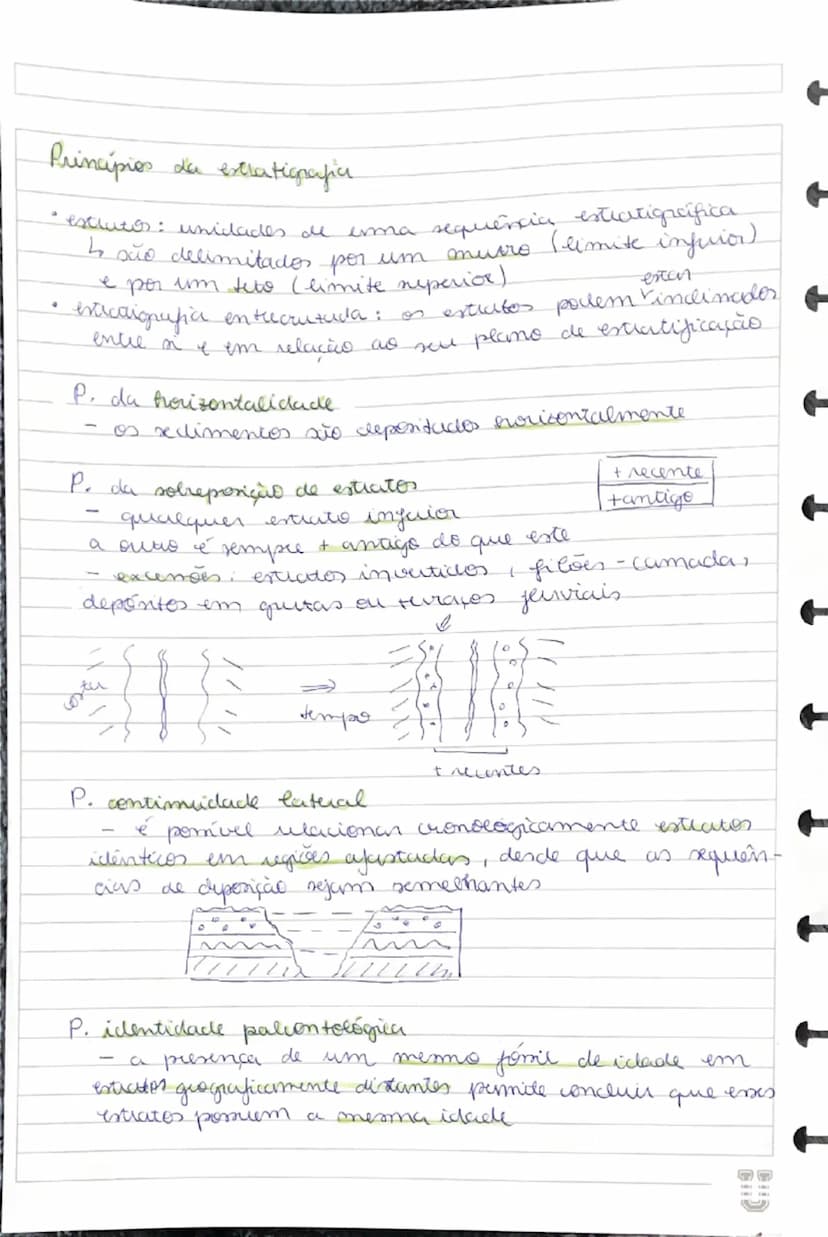 Princípios da estratigrafia
• estratos: unidades de uma sequência estratigráfica
↳ são delimitados por um muro (limite inferior)
e por um teto (limite superior)
• estratigrafia entrecruzada: os estratos podem estar inclinados
entre si e em relação ao seu plano de estratificação
P. da horizontalidade
- os sedimentos são depositados horizontalmente
P. da sobreposição de estratos
+ recente
+ antigo
- qualquer estrato inferior
a outro é sempre + antigo do que este
- excessões: estratos invertidos, filões-camada,
depósitos em grutas ou terraços fluviais
tempo
+ recentes
P. continuidade lateral
- é possível relacionar cronologicamente estratos
idênticos em regiões afastadas, desde que as sequên-
cias de deposição sejam semelhantes
P. identidade paleontológica
- a presença de um mesmo fóssil de idade em
estratos geograficamente distantes permite concluir que esses
estratos possuem a mesma idade